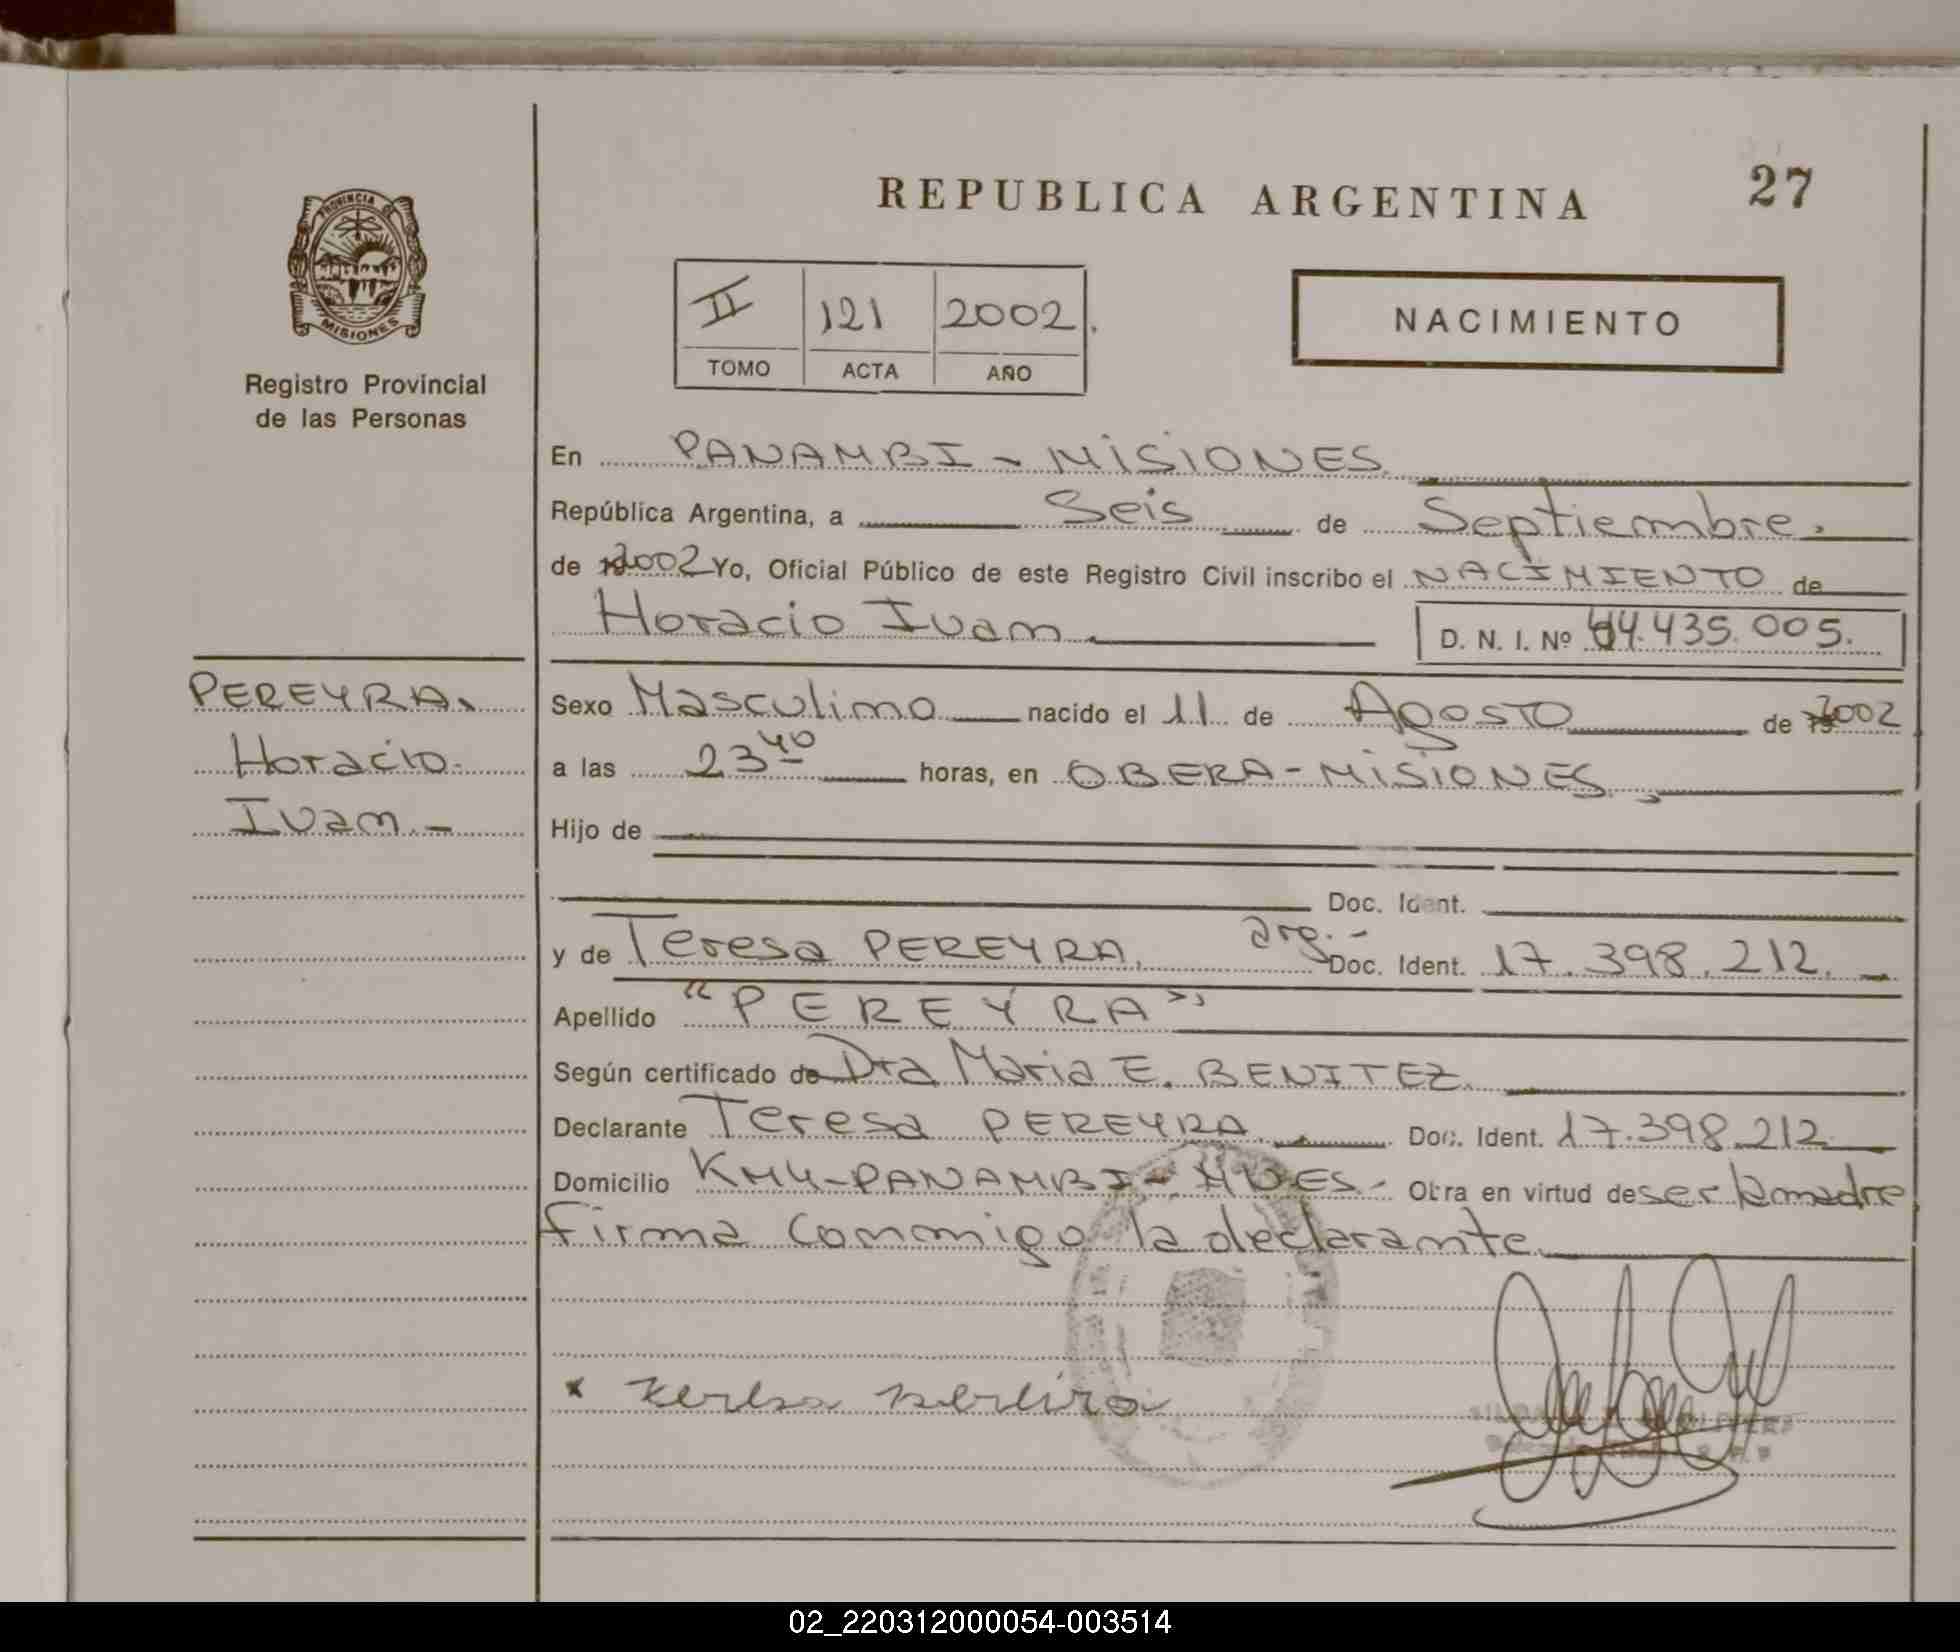 REPUBLICA ARGENTINA
27
PROVINCIA DE
MISIONES
Registro Provincial
de las Personas
II 121 2002.
TOMO ACTA AÑO
NACIMIENTO
En PANAMBI - MISIONES.
República Argentina, a Seis de Septiembre.
de 2002 Yo, Oficial Público de este Registro Civil inscribo el NACIMIENTO de
Horacio Ivam.
D. N. I. Nº 44.435.005.
PEREYRA.
Horacio.
Ivam.-
Sexo Masculimo nacido el 11 de Agosto de 2002
a las 23 40 horas, en OBERA - MISIONES.
Hijo de
Doc. Ident.
y de Teresa PEREYRA. arg.- Doc. Ident. 17.398.212.
Apellido "PEREYRA"
Según certificado de Dra Maria E. BENITEZ.
Declarante Teresa PEREYRA. Doc. Ident. 17.398.212.
Domicilio KM4-PANAMBI- MNES.- Obra en virtud de ser la madre
firma conmigo la declarante.
02_220312000054-003514